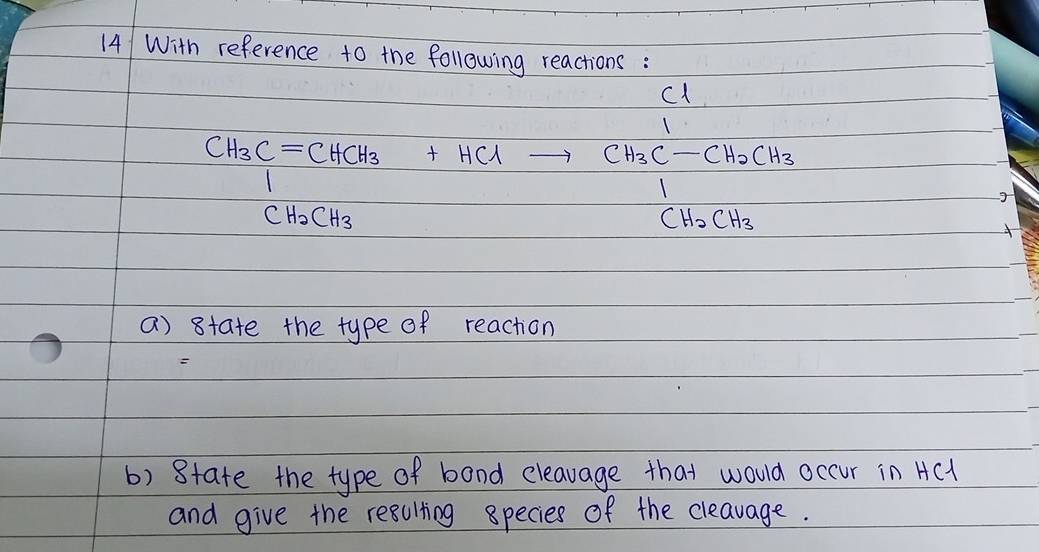 14 With reference to the following reactions :
Cl
|
CH₃C=CHCH₃ + HCl → CH₃C—CH₂CH₃
| |
CH₂CH₃ CH₂CH₃
a) State the type of reaction
=
b) State the type of bond cleavage that would occur in HCl
and give the resulting species of the cleavage.